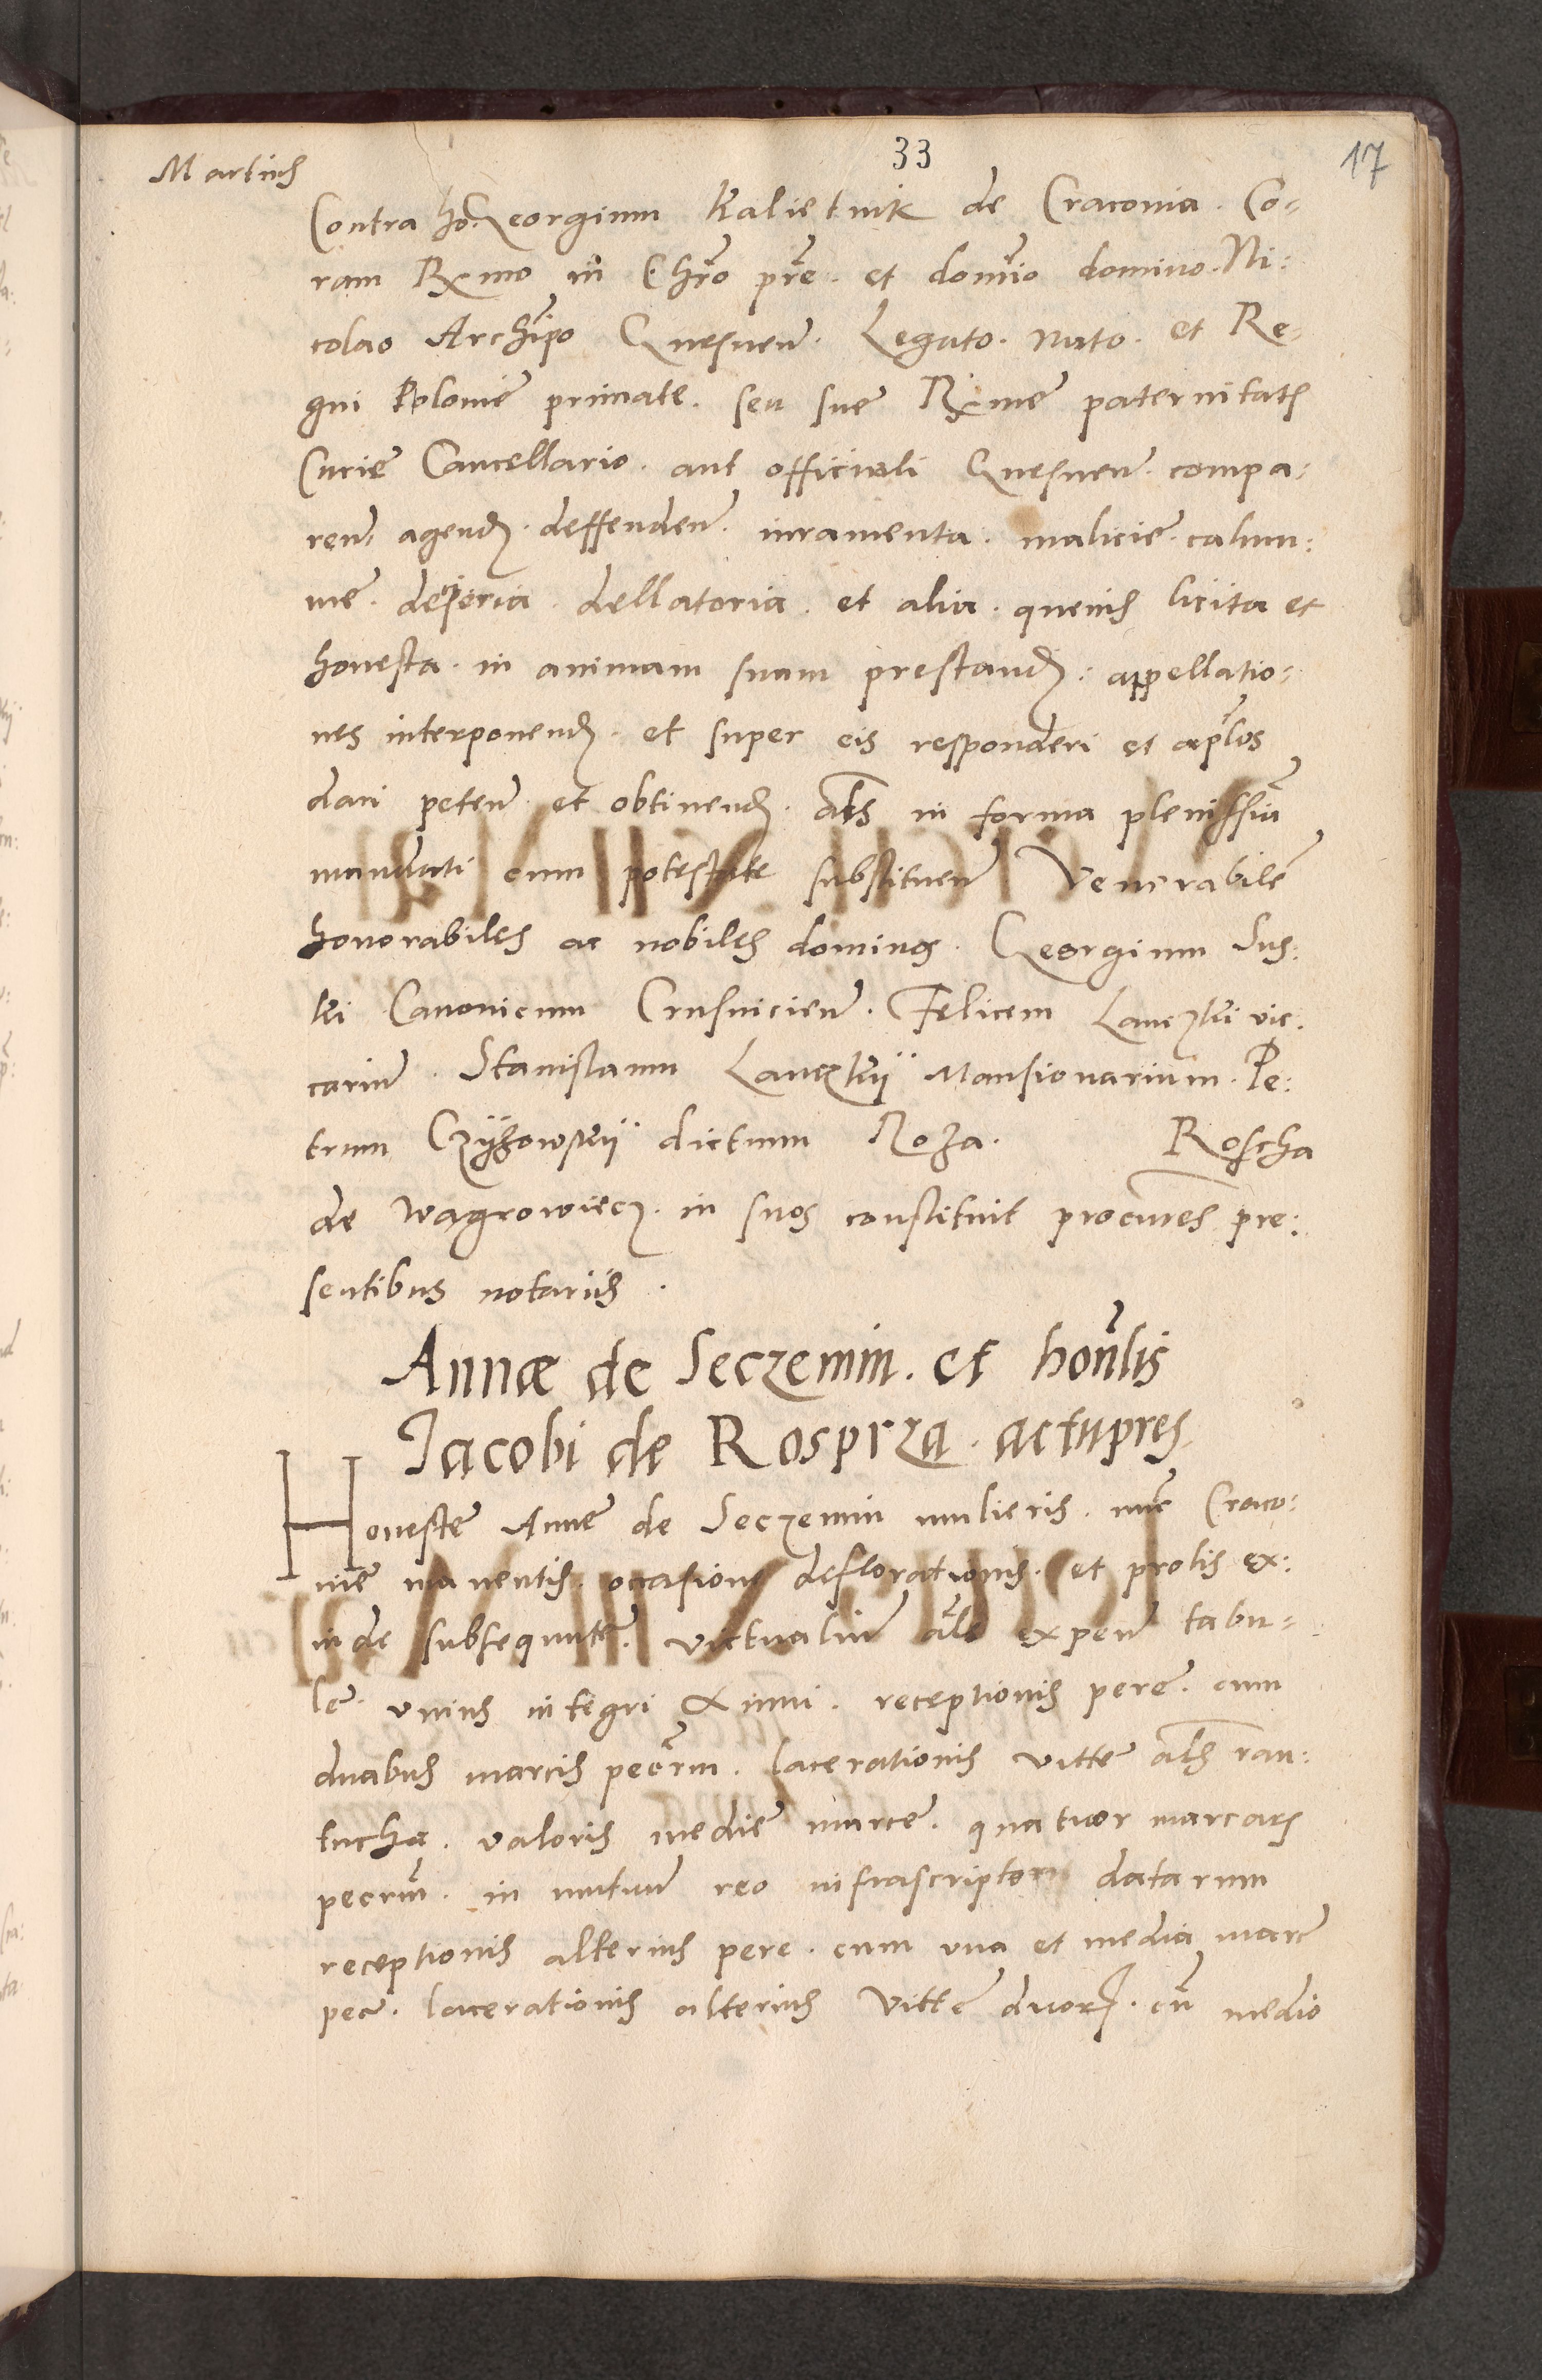 33
17
Martius
Contra ho. Georgium Kalietnik de Craconia. Co-
ram Rxmo in Chro pre. et domio domino. Ni:
colao Archipo Gnesnen. Legato. nato. et Re-
gni Polonie primate. seu sue Rxme paternitatis
Curie Cancellario. aut officiali Gnesnen. compa:
ren. agend. deffenden. iuramenta. malicie. calum:
nie. dellatoria. et alia. quevis licita et
honesta. in animam suam prestand: appellatio:
nes interponend. et super eis responderi et aplos
dari peten. et obtinend. als in forma plenissia
mandati cum potestate substituen Venerabile
honorabiles ac nobiles dominos. Georgium Sus:
ki Canonicum Crusvicien. Felicem Lanczki vic.
carium. Stanislaum Lanczkij Mansionarium. Pe:
trum Czyzowskij dictum Roza. Roscha
de Wagrowiecz. in suos constituit procures pre:
sentibus notariis.
Annæ de Seczemin. et honlis
Jacobi de Rosprza. actu pres.
Honeste Anne de Seczemin mulieris. nuc Craco:
vie manentis. occasione deflorationis. et prolis ex:
inde subsequute. victualium als expen tabu-
le. unius integri Anni. receptionis pere. cum
duabus marcis pecrm. lacerationis vitte als ran:
tucha. valoris medie marce. quatuor marcarum
pecrm. in mutuum reo infrascripto datarum
receptionis alterius pere. cum una et media marc
pec. lacerationis alterius Vitte duor. cu medio